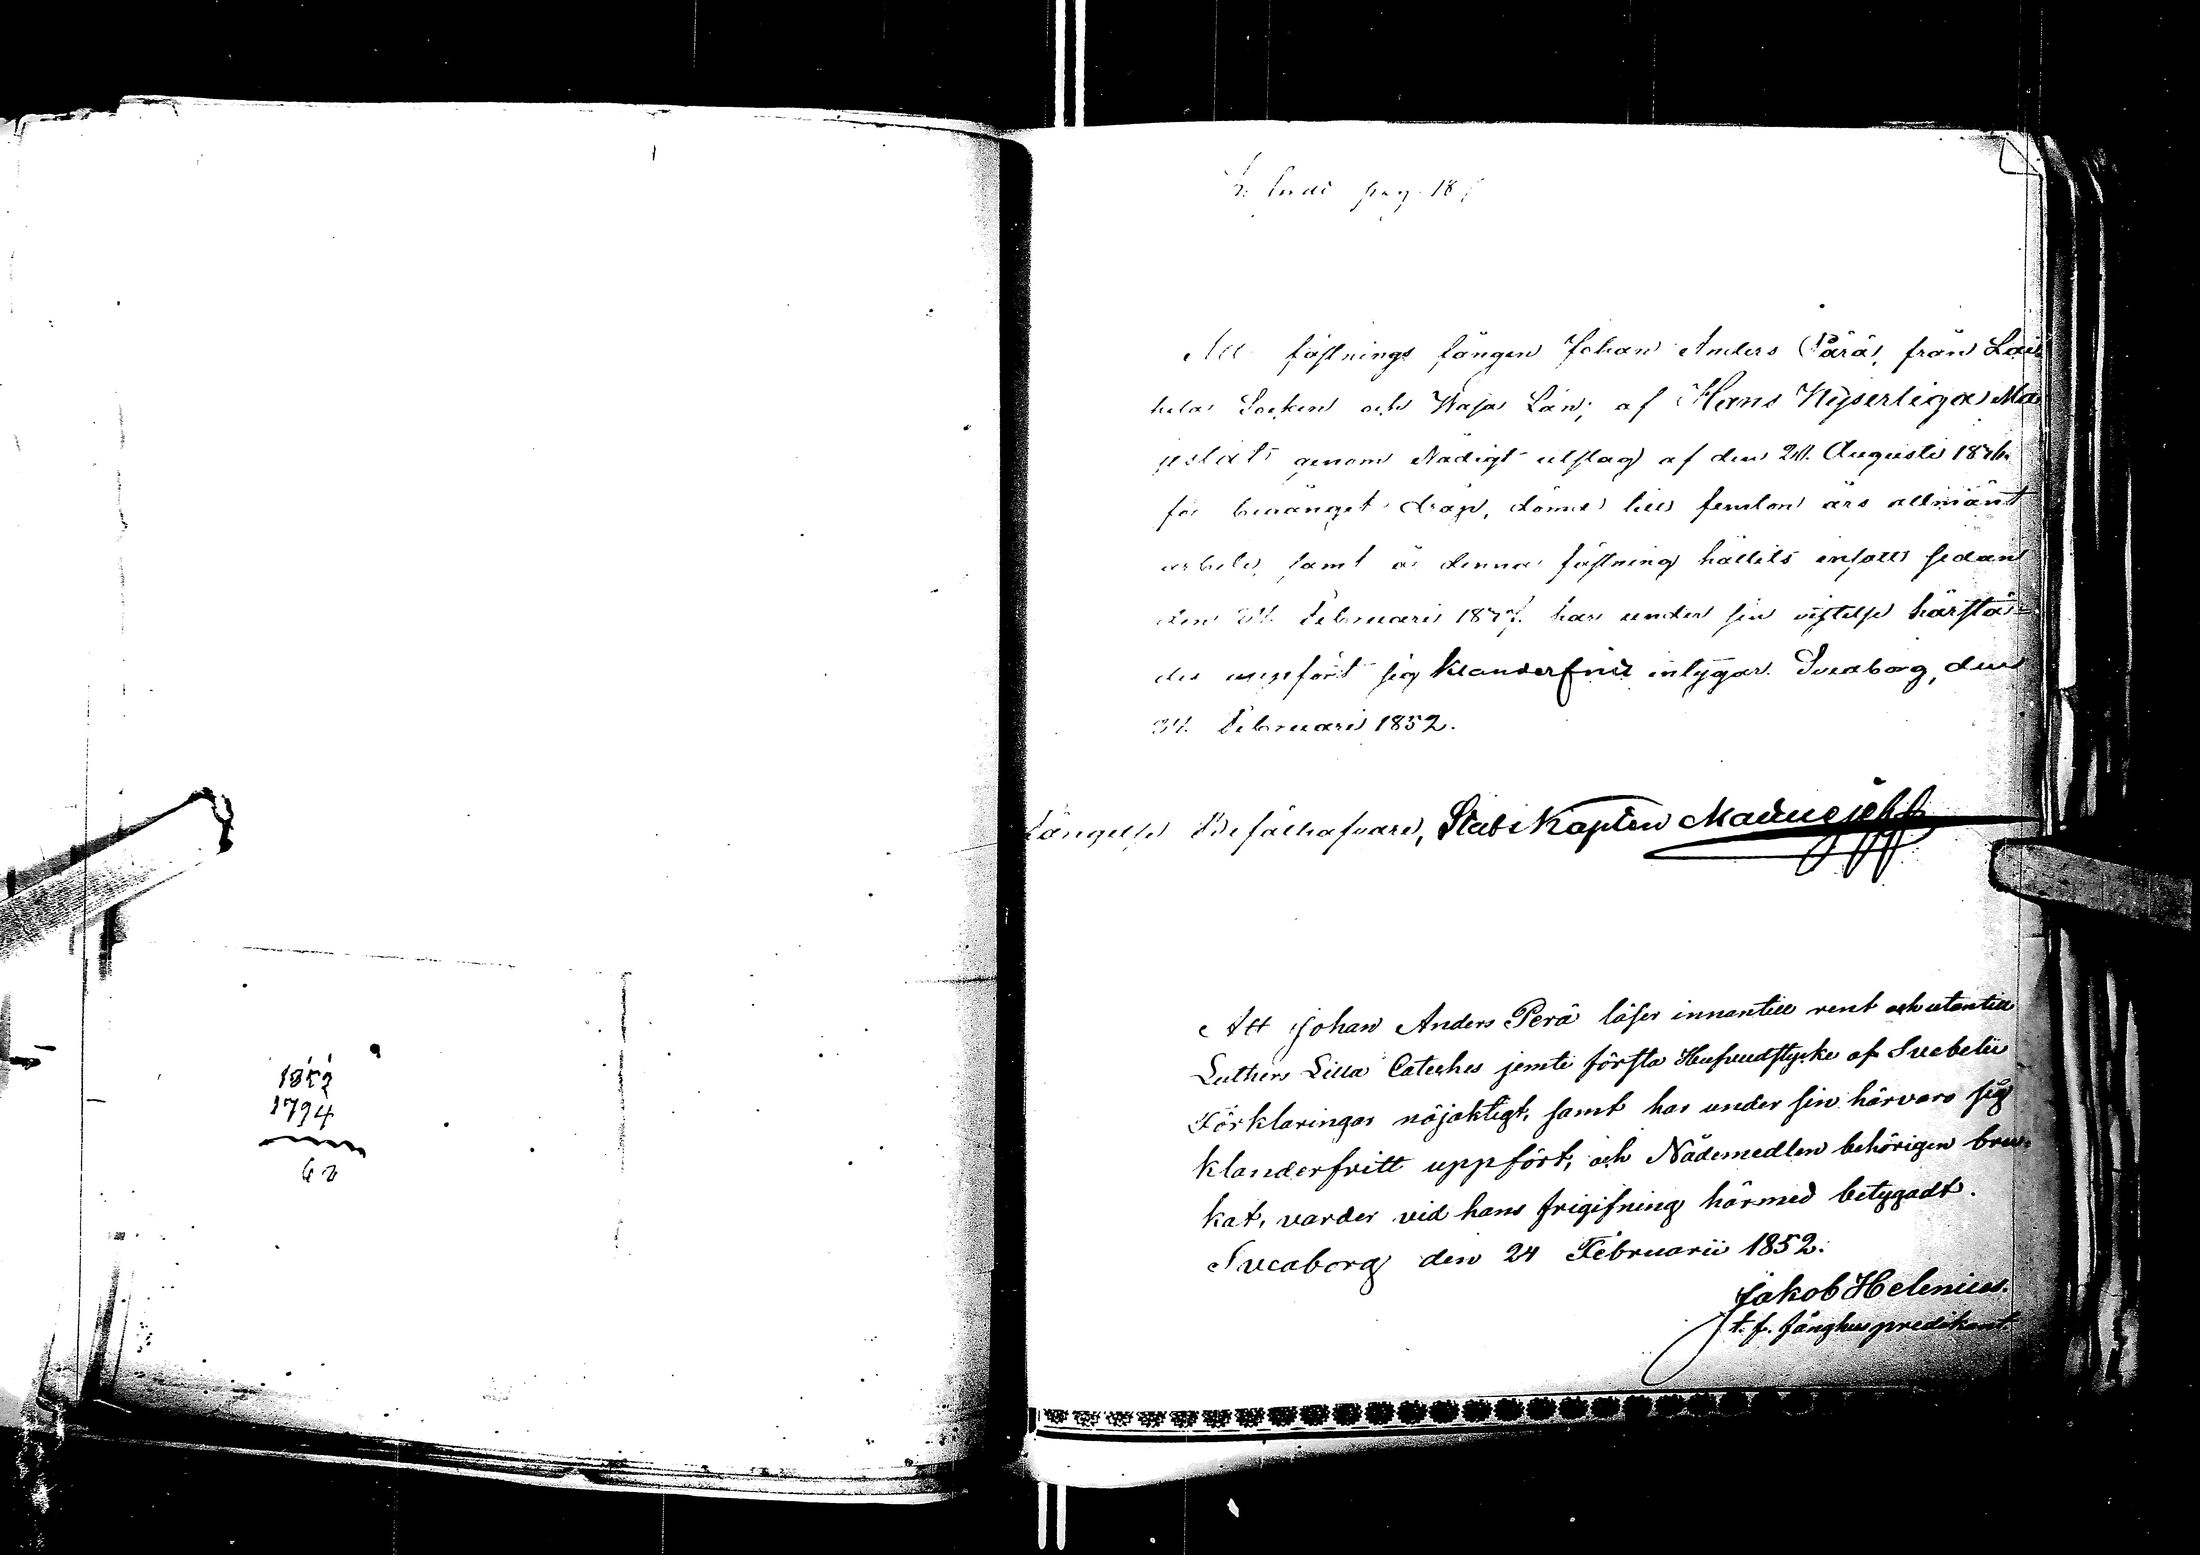 1852
1794
62
pag. 18
Att fästnings fången Johan Anders Pärä, från Lai
hela Socken och Wasa Län, af Hans Kejserliga Ma
jestäts genom Nådigt utslag af den Augusti
för beränget dråp, dömd till femton års allmänt
arbete, samt å denna fästning hållits insatt sedan
den Februari har under sin vistelse härstä-
des uppfört sig klanderfritt intygar. Sveaborg, den
24. Februari 1852.
Fängelse Befälhafvare, Stabskapten
Att Johan Anders Perä läser innantill rent och utantill
Luthers Lilla Cateches jemte första Hufvudstycke af Svebelii
Förklaringar nöjaktigt, samt har under sin härvaro sig
klanderfritt uppfört, och Nådemedlen behörigen bru-
kat, varder vid hans frigifning härmed betygadt.
Sveaborg den 24 Februarii 1852.
Jakob Helenius.
t. f. fånghuspredikant.